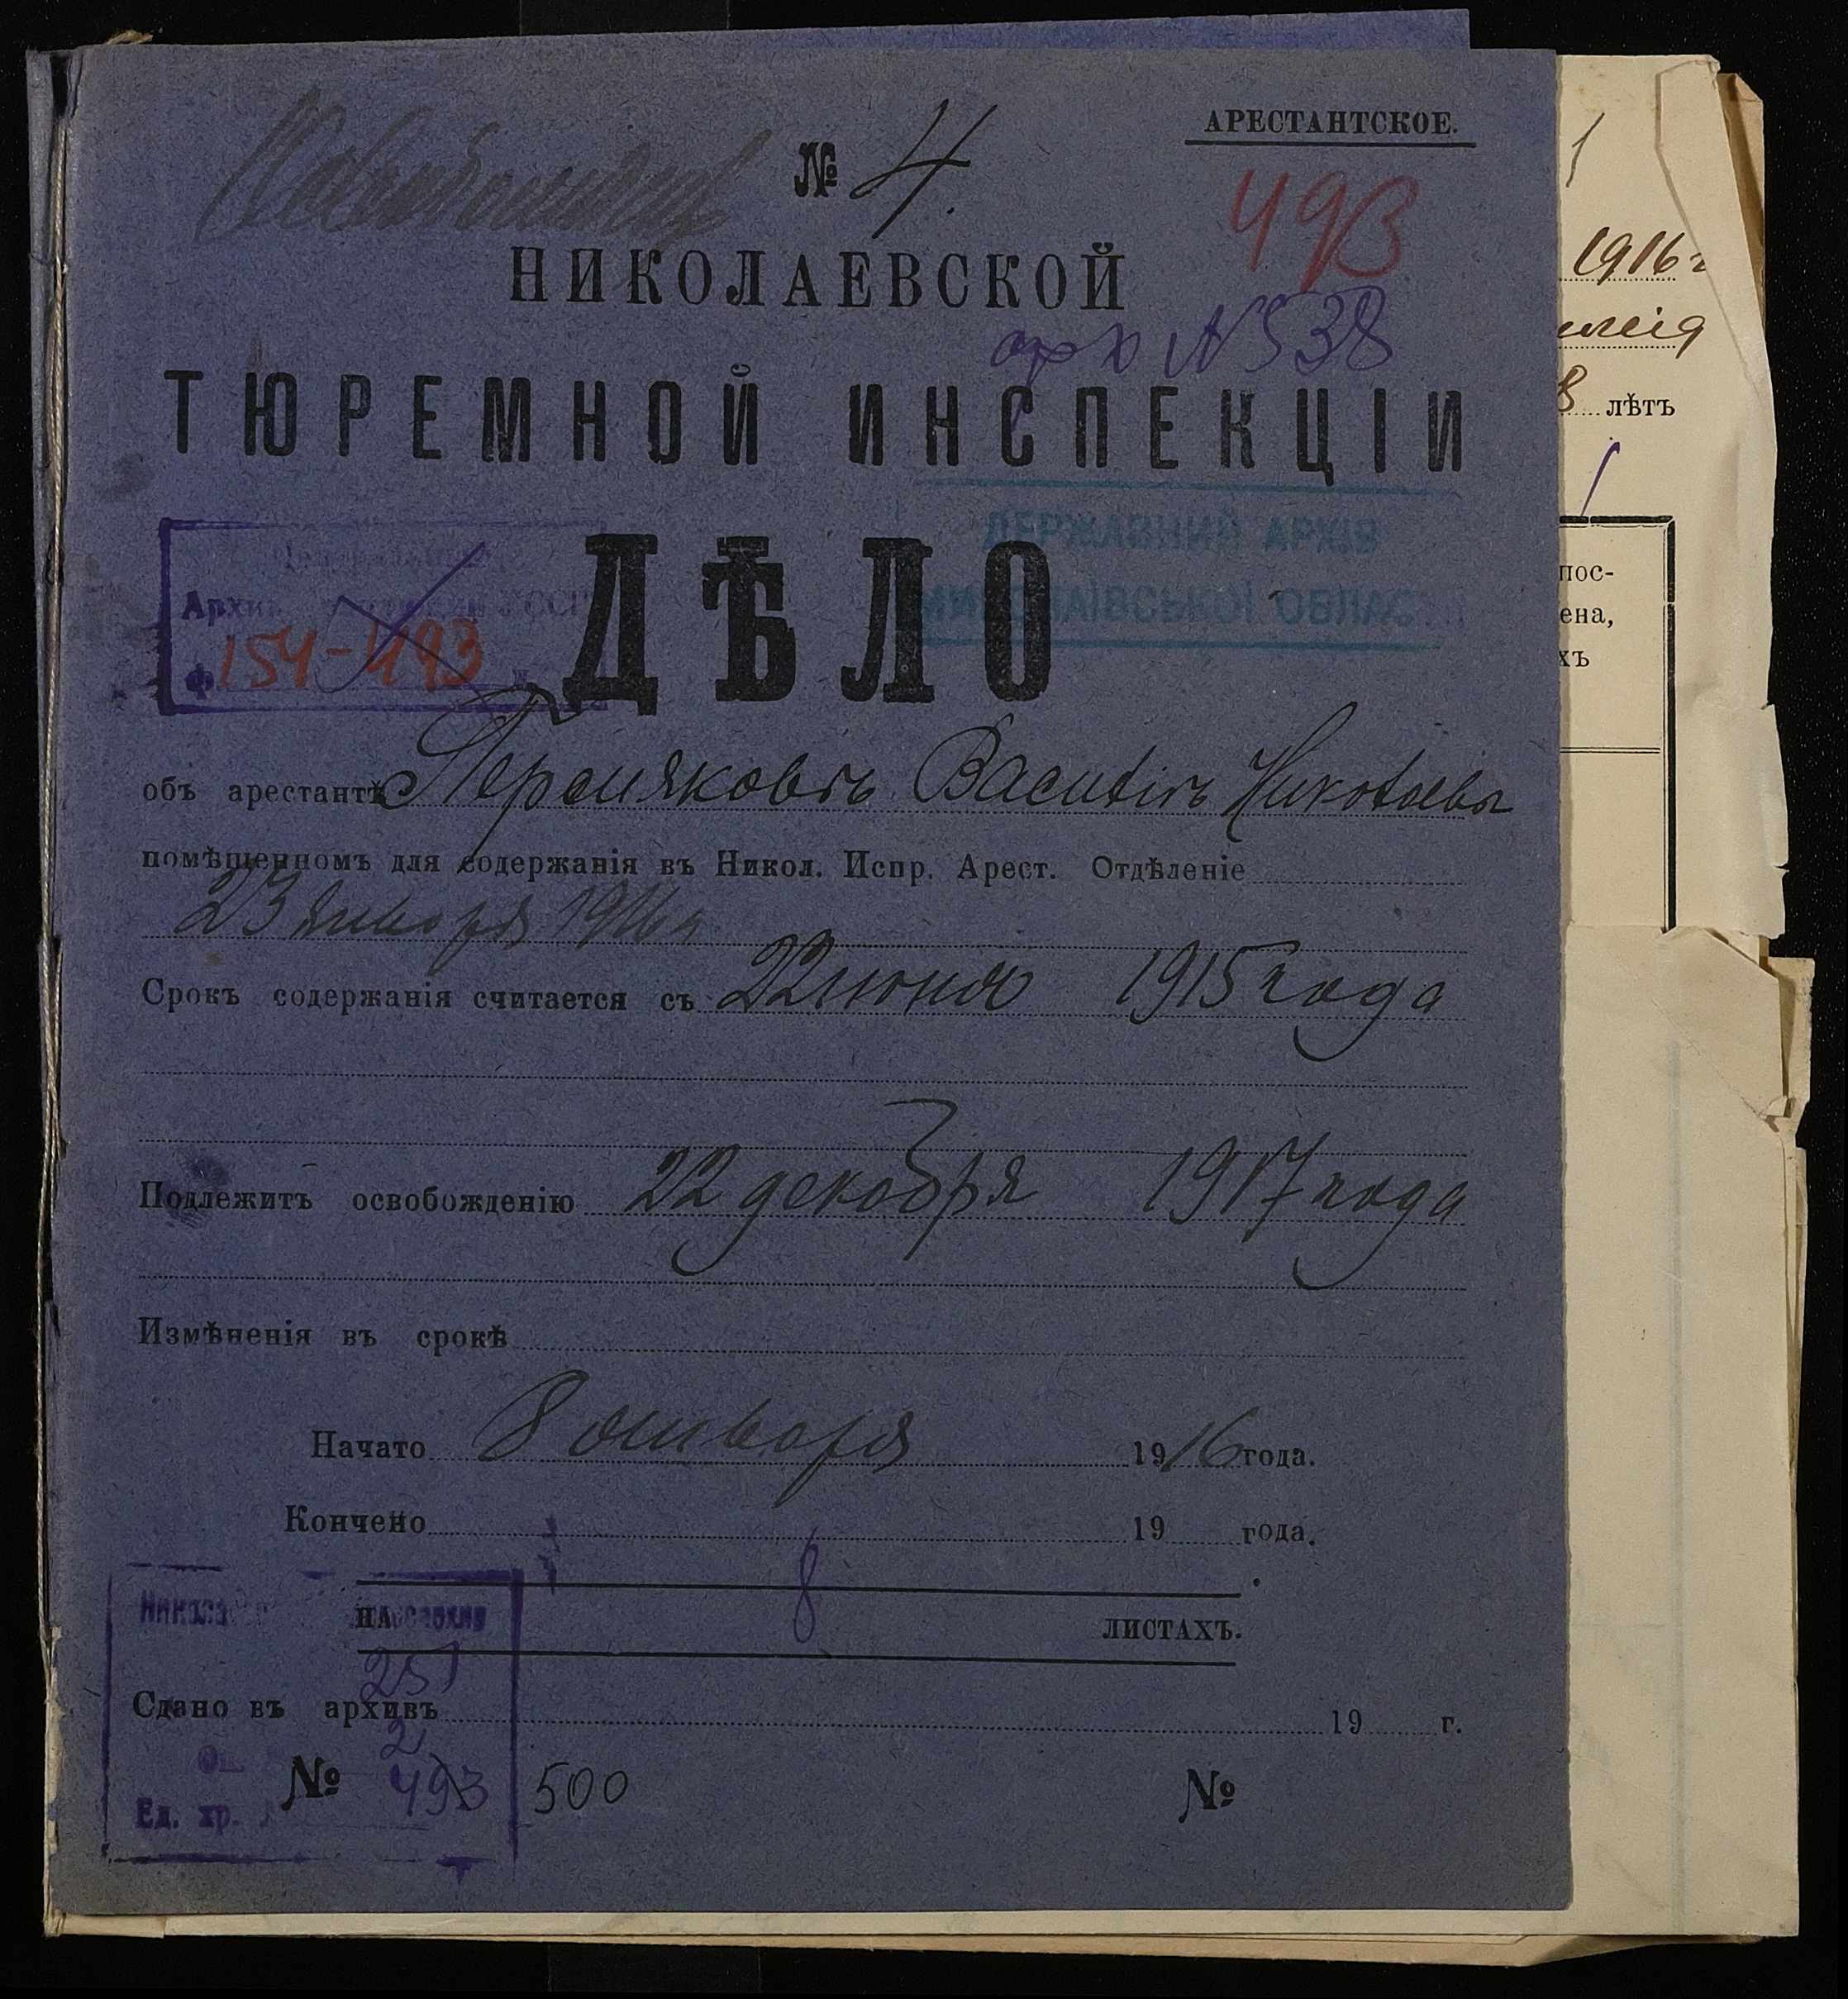 АРЕСТАНТСКОЕ.
№ 4.
493
НИКОЛАЕВСКОЙ
арх № 538
ТЮРЕМНОЙ ИНСПЕКЦІИ
ДЕРЖАВНИЙ АРХІВ
МИКОЛАЇВСЬКОЇ ОБЛАС
Архив
ф 154-493
ДѢЛО
объ арестантѣ Персіяковъ Василій Николаевъ
помѣщенномъ для содержанія въ Никол. Испр. Арест. Отдѣленіе
23 января 1916 г
Срокъ содержанія считается съ 22 июня 1915 года
Подлежитъ освобожденію 22 декабря 1917 года
Измѣненія въ срокѣ
Начато 8 января 1916 года.
Кончено 19 года.
НА 8 ЛИСТАХЪ.
251
Сдано въ архивъ 19 г.
2
№ 493 500 №
Ед. хр.
1
1916 г
8 лѣтъ
пос-
ена,
хъ